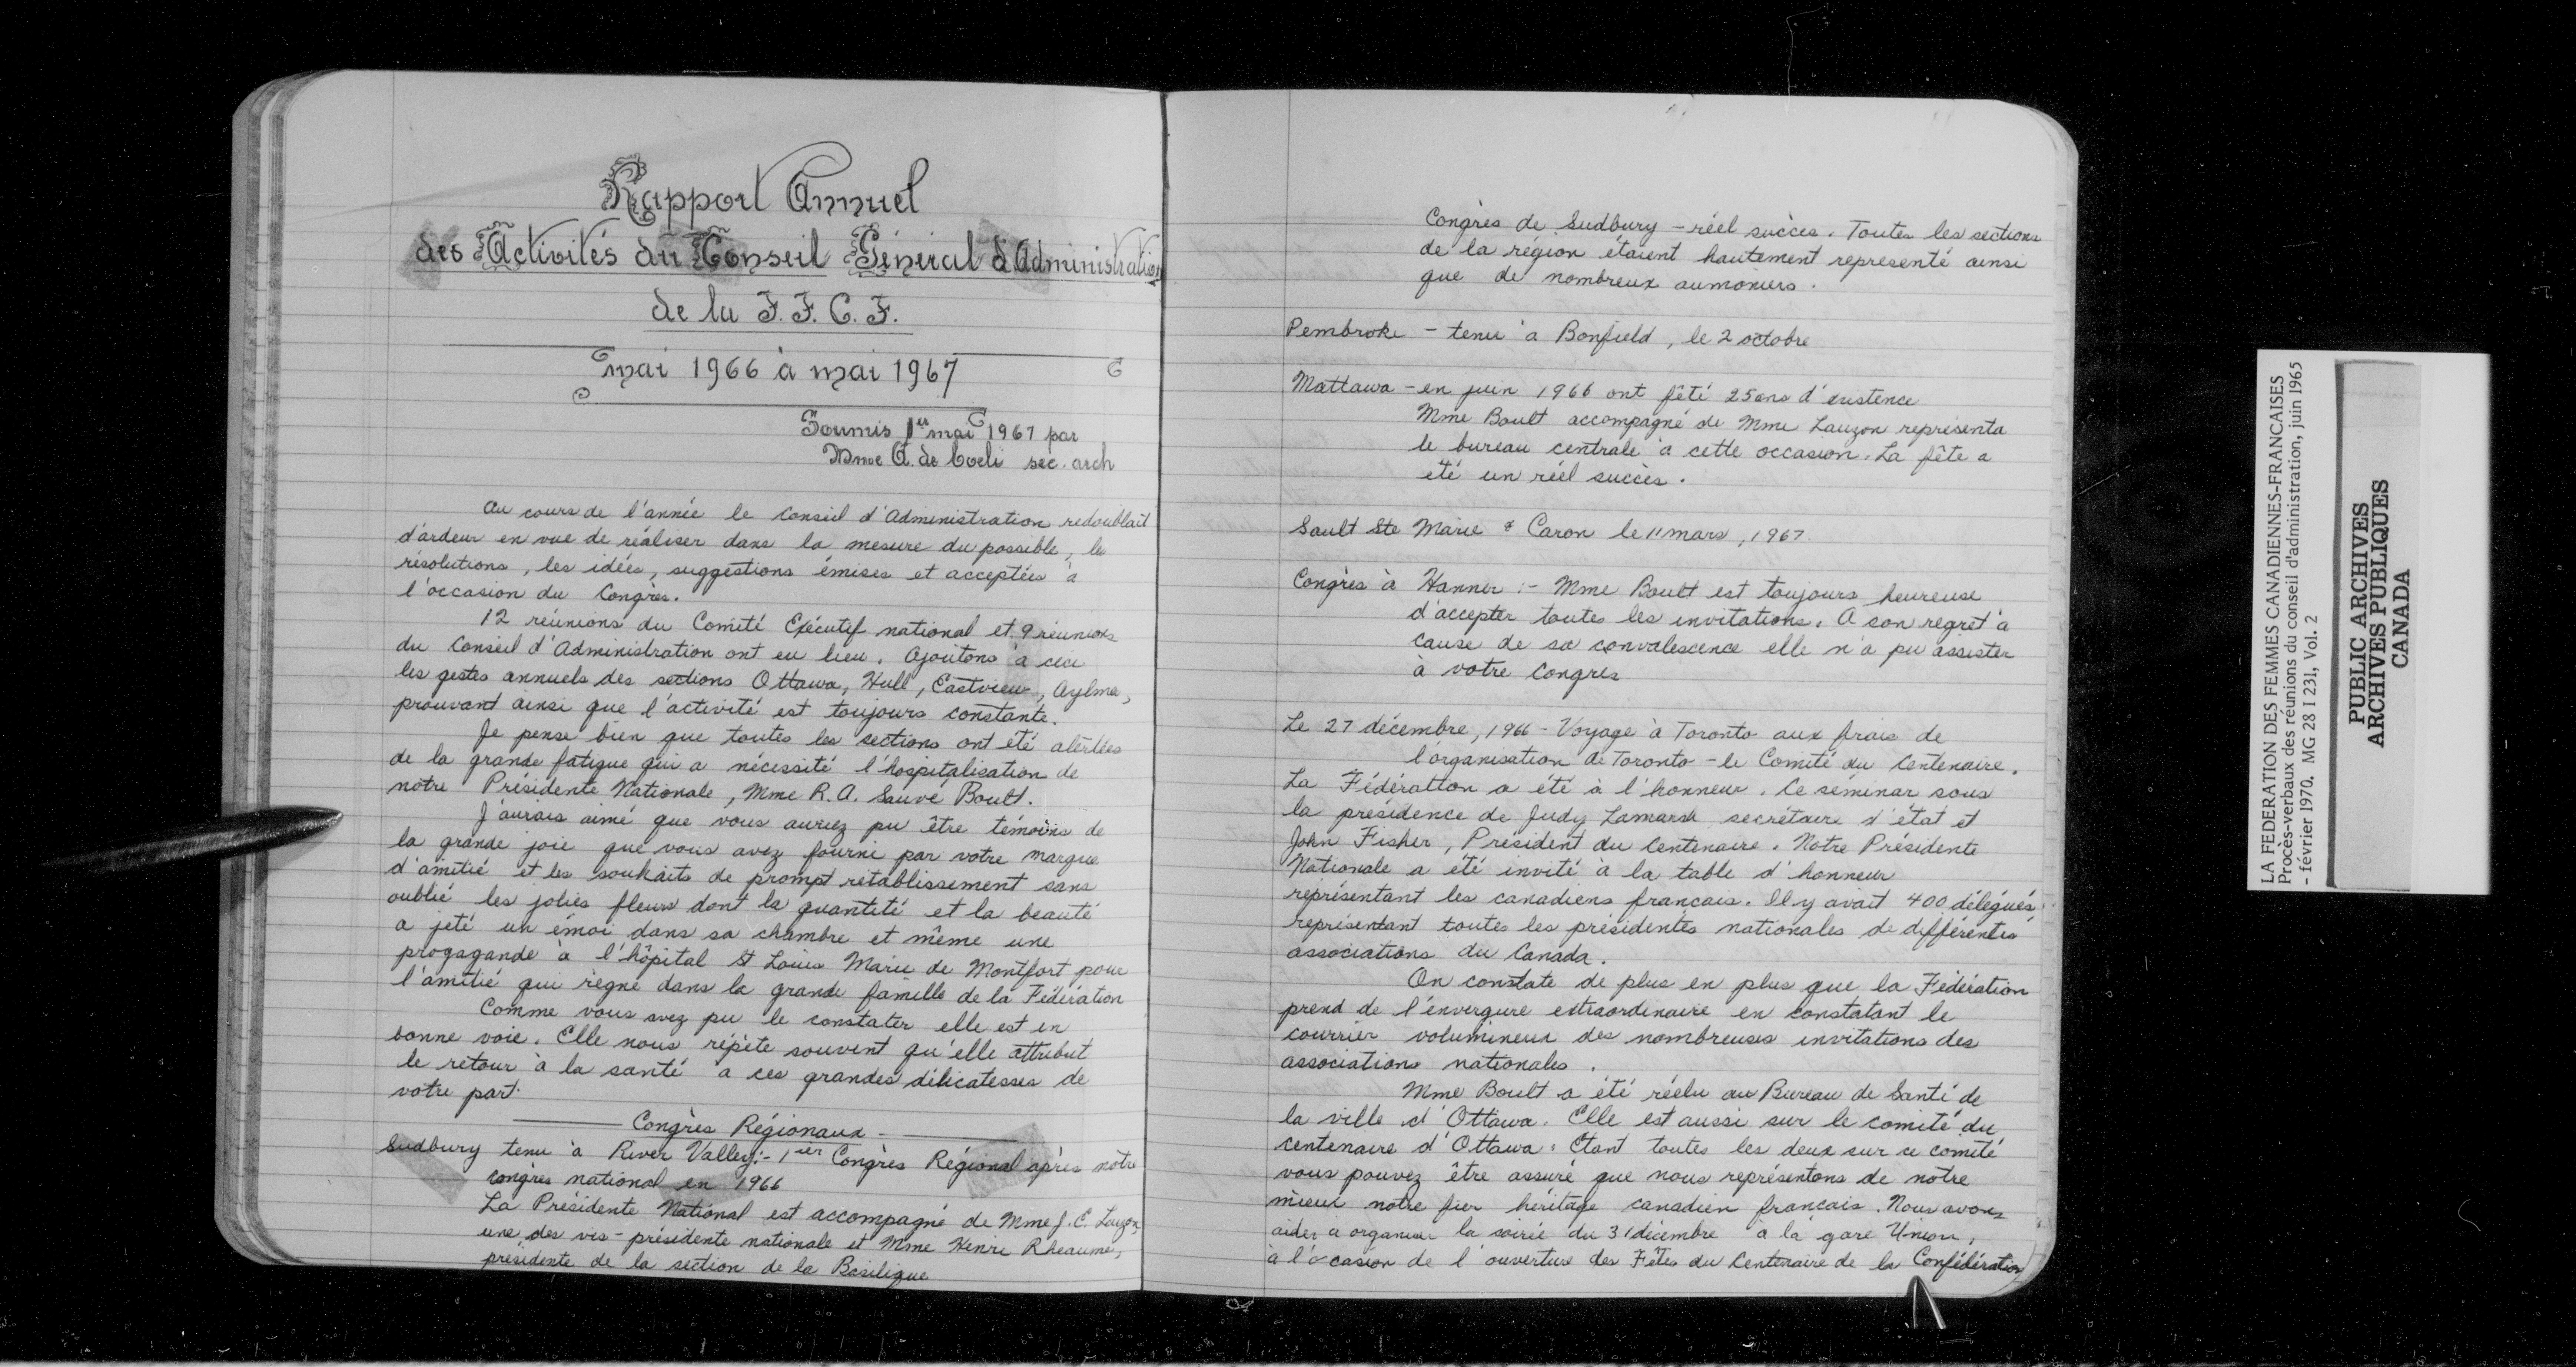 Rapport Annuel
des Activités du Conseil Général d'Administration
de la F.F.C.F.
mai 1966 à mai 1967
Soumis 1er mai 1967 par
Mme A. de Coeli sec. arch
Au cours de l'année le Conseil d'Administration redoublait
d'ardeur en vue de réaliser dans la mesure du possible, les
résolutions, les idées, suggestions émises et acceptées à
l'occasion du Congrès.
12 réunions du Comité Exécutif national et 9 réunions
du Conseil d'Administration ont eu lieu. Ajoutons à ceci
les gestes annuels des sections Ottawa, Hull, Eastview, Aylmer,
prouvant ainsi que l'activité est toujours constante.
Je pense bien que toutes les sections ont été alertées
de la grande fatigue qui a nécessité l'hospitalisation de
notre Présidente Nationale, Mme R. A. Sauvé Boult.
J'aurais aimé que vous auriez pu être témoins de
la grande joie que vous avez fourni par votre marque
d'amitié et les souhaits de prompt rétablissement sans
oublié les jolies fleurs dont la quantité et la beauté
a jeté un émoi dans sa chambre et même une
progagande à l'hôpital St Louis Marie de Montfort pour
l'amitié qui règne dans la grande famille de la Fédération
Comme vous avez pu le constater elle est en
bonne voie. Elle nous répète souvent qu'elle attribut
le retour à la santé a ces grandes délicatesses de
votre part.
Congrès Régionaux -
Sudbury tenu à River Valley:- 1ier Congrès Régional après notre
congrès national en 1966
La Présidente National est accompagné de Mme J. C. Lauzon,
une des vis-présidente nationale et Mme Henri Rheaume,
présidente de la section de la Basilique
Congrès de Sudbury - réel succès. Toutes les sections
de la région étaient hautement representé ainsi
que de nombreux aumoniers.
Pembroke - tenu à Bonfield, le 2 octobre
Mattawa - en juin 1966 ont fêté 25 ans d'existence
Mme Boult accompagné de Mme Lauzon représenta
le bureau centrale à cette occasion. La fête a
été un réel succès.
Sault Ste Marie & Caron le 11 mars, 1967
Congrès à Hanner :- Mme Boult est toujours heureuse
d'accepter toutes les invitations. A son regret à
cause de sa convalescence elle n'a pu assister
à votre congres
Le 27 décembre, 1966 - Voyage à Toronto aux frais de
l'organisation de Toronto - le Comité du Centenaire.
La Fédération a été à l'honneur. Ce séminar sous
la présidence de Judy Lamarsh secrétaire d'état et
John Fisher, Président du Centenaire. Notre Présidente
Nationale a été invité à la table d'honneur
représentant les canadiens francais. Il y avait 400 délégués
représentant toutes les présidentes nationales de différentes
associations du Canada.
On constate de plus en plus que la Fédération
prend de l'envergure extraordinaire en constatant le
courrier volumineux des nombreuses invitations des
associations nationales.
Mme Boult a été réélu au Bureau de Santé de
la ville d'Ottawa. Elle est aussi sur le comité du
centenaire d'Ottawa. Etant toutes les deux sur ce comité
vous pouvez être assuré que nous représentons de notre
mieux notre fier héritage canadien francais. Nous avons
aider a organiser la soirée du 31 décembre à la gare Union,
à l'occasion de l'ouverture des Fêtes du Centenaire de la Confédération
LA FEDERATION DES FEMMES CANADIENNES-FRANCAISES
Procès-verbaux des réunions du conseil d'administration, juin 1965
- février 1970. MG 28 I 231, Vol. 2
PUBLIC ARCHIVES
ARCHIVES PUBLIQUES
CANADA